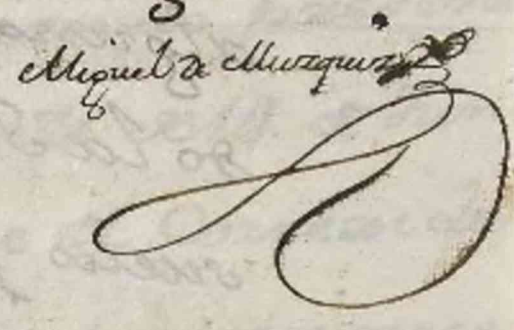 Miguel de Muzquiz